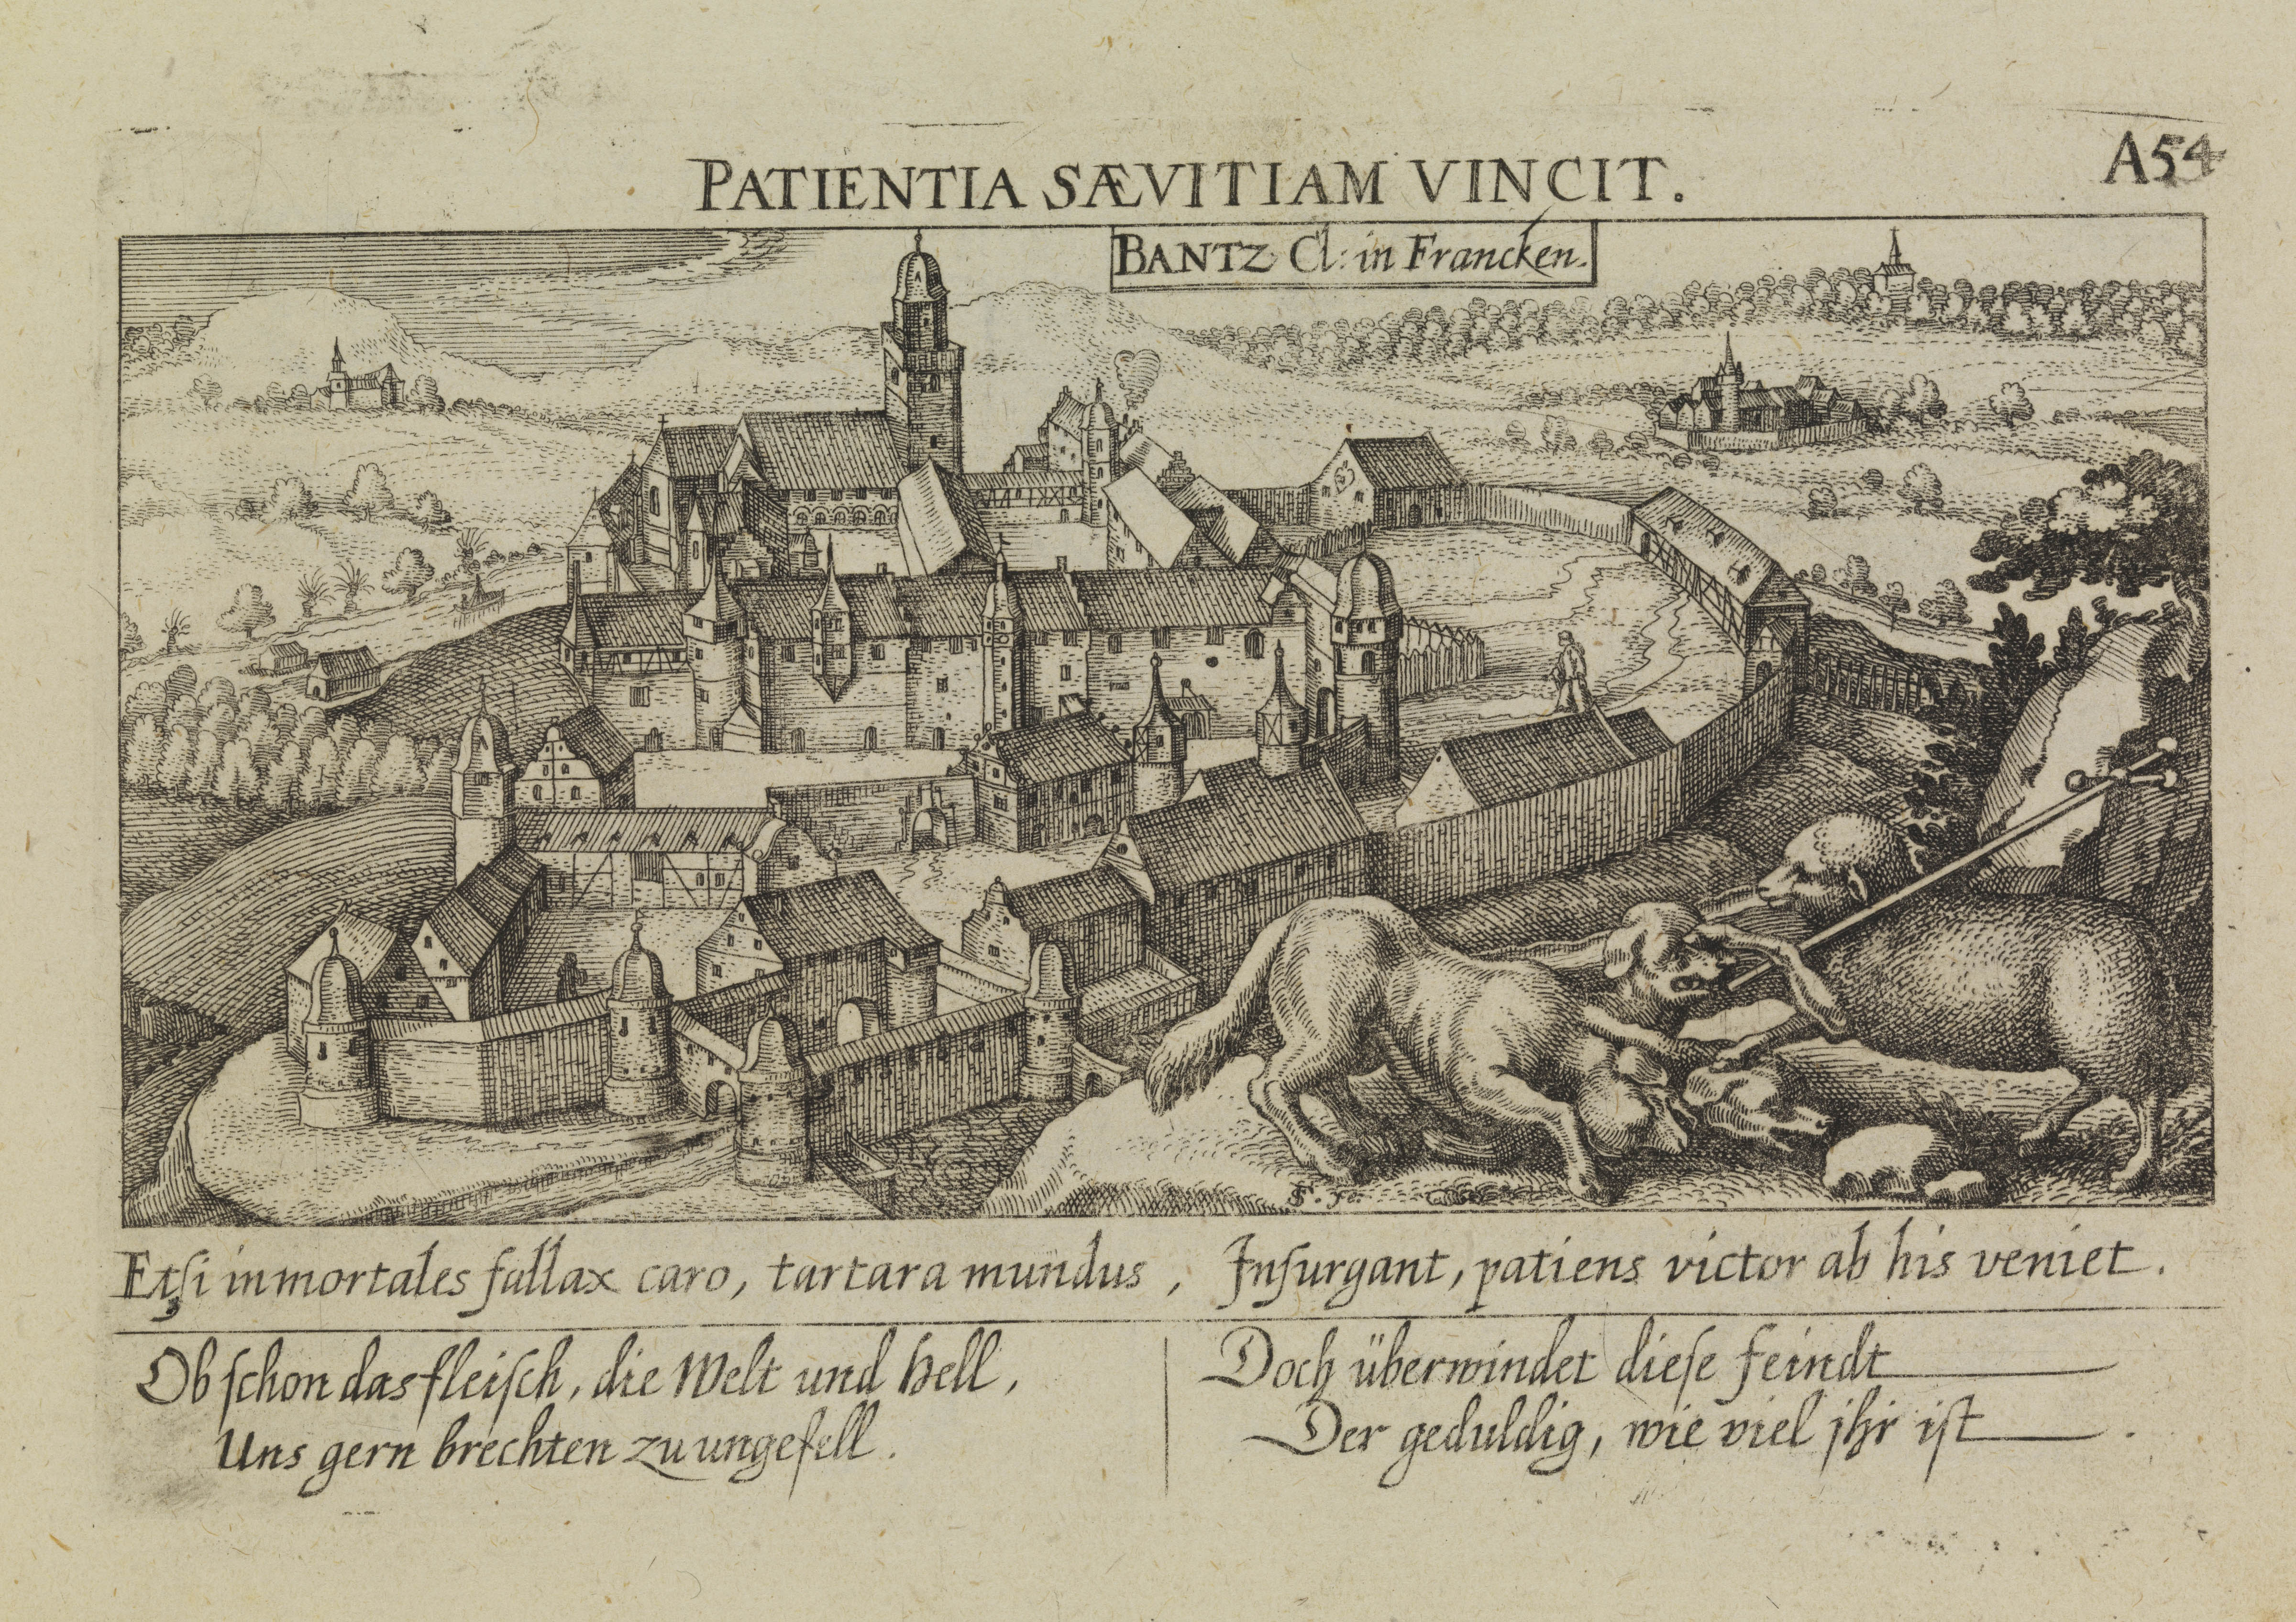 PATIENTIA SÆVITIAM VINCIT.
A54
BANTZ Cl: in Francken.
Etſi in mortales fallax caro, tartara mundus, Inſurgant, patiens victor ab his veniet.
Ob ſchon das fleiſch, die Welt und Hell,
Uns gern brechten zu ungefell.
Doch überwindet dieſe feindt
Der geduldig, wie viel jhr iſt.